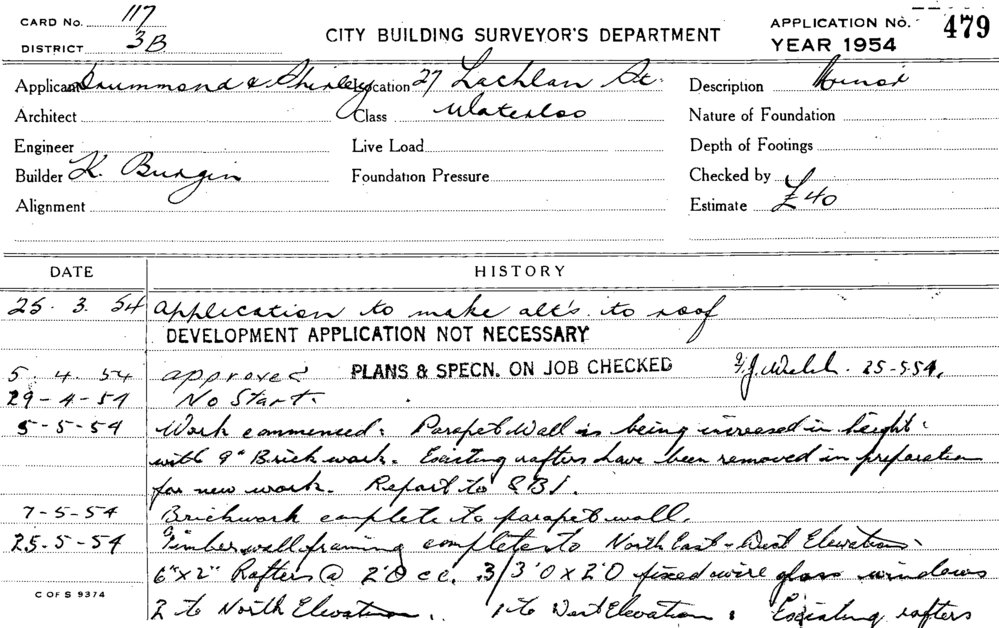 CARD No. 117
DISTRICT 3B
CITY BUILDING SURVEYOR'S DEPARTMENT
APPLICATION No. 479
YEAR 1954
Applicant Drummond & Shirley Location 27 Lachlan St. Description Minor
Architect Class Waterloo Nature of Foundation
Engineer Live Load Depth of Footings
Builder K. Burgin Foundation Pressure Checked by
Alignment Estimate £40
DATE HISTORY
25. 3. 54 Application to make alt's. to roof
DEVELOPMENT APPLICATION NOT NECESSARY
5. 4. 54 approved PLANS & SPECN. ON JOB CHECKED J. Welch. 25-5-54.
29-4-54 No Start.
5-5-54 Work commenced: Parapet Wall is being increased in height
with 9" Brickwork. Existing rafters have been removed in preparation
for new work. Report to SBI.
7-5-54 Brickwork complete to parapet wall.
25-5-54 Timber wall framing complete to North East & West Elevations.
6"x2" Rafters @ 2'0 cc. 3/3'0 x 2'0 fixed wire glass windows
2 to North Elevation. 1 to West Elevation: Existing rafters
C OF S 9374